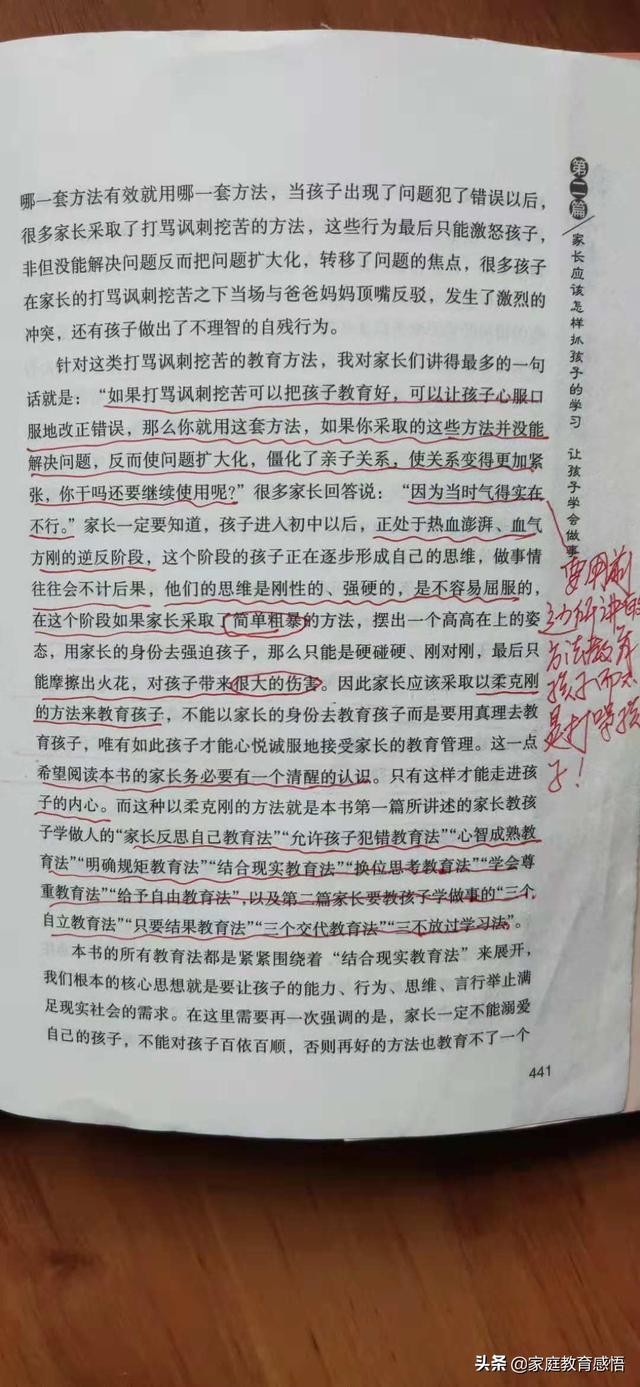 哪一套方法有效就用哪一套方法，当孩子出现了问题犯了错误以后，
很多家长采取了打骂讽刺挖苦的方法，这些行为最后只能激怒孩子，
非但没能解决问题反而把问题扩大化，转移了问题的焦点，很多孩子
在家长的打骂讽刺挖苦之下当场与爸爸妈妈顶嘴反驳，发生了激烈的
冲突，还有孩子做出了不理智的自残行为。
针对这类打骂讽刺挖苦的教育方法，我对家长们讲得最多的一句
话就是：“如果打骂讽刺挖苦可以把孩子教育好，可以让孩子心服口
服地改正错误，那么你就用这套方法，如果你采取的这些方法并没能
解决问题，反而使问题扩大化，僵化了亲子关系，使关系变得更加紧
张，你干吗还要继续使用呢？”很多家长回答说：“因为当时气得实在
不行。”家长一定要知道，孩子进入初中以后，正处于热血澎湃、血气
方刚的逆反阶段，这个阶段的孩子正在逐步形成自己的思维，做事情
往往会不计后果，他们的思维是刚性的、强硬的，是不容易屈服的，
在这个阶段如果家长采取了简单粗暴的方法，摆出一个高高在上的姿
态，用家长的身份去强迫孩子，那么只能是硬碰硬、刚对刚，最后只
能摩擦出火花，对孩子带来很大的伤害。因此家长应该采取以柔克刚
的方法来教育孩子，不能以家长的身份去教育孩子而是要用真理去教
育孩子，唯有如此孩子才能心悦诚服地接受家长的教育管理。这一点
希望阅读本书的家长务必要有一个清醒的认识。只有这样才能走进孩
子的内心。而这种以柔克刚的方法就是本书第一篇所讲述的家长教孩
子学做人的“家长反思自己教育法”“允许孩子犯错教育法”“心智成熟教
育法”“明确规矩教育法”“结合现实教育法”“换位思考教育法”“学会尊
重教育法”“给予自由教育法”，以及第二篇家长要教孩子学做事的“三个
自立教育法”“只要结果教育法”“三个交代教育法”“三不放过学习法”。
本书的所有教育法都是紧紧围绕着“结合现实教育法”来展开，
我们根本的核心思想就是要让孩子的能力、行为、思维、言行举止满
足现实社会的需求。在这里需要再一次强调的是，家长一定不能溺爱
自己的孩子，不能对孩子百依百顺，否则再好的方法也教育不了一个
441
第二篇
家长应该怎样抓孩子的学习 让孩子学会做事
要用前
边所讲的
方法教育
孩子而不
是打骂孩
子！
头条@家庭教育感悟